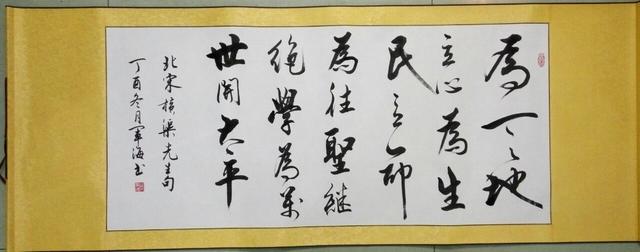 為天地
立心為生
民立命
為往聖繼
絶學為萬
世開太平
北宋橫渠先生句
丁酉冬月軍海书